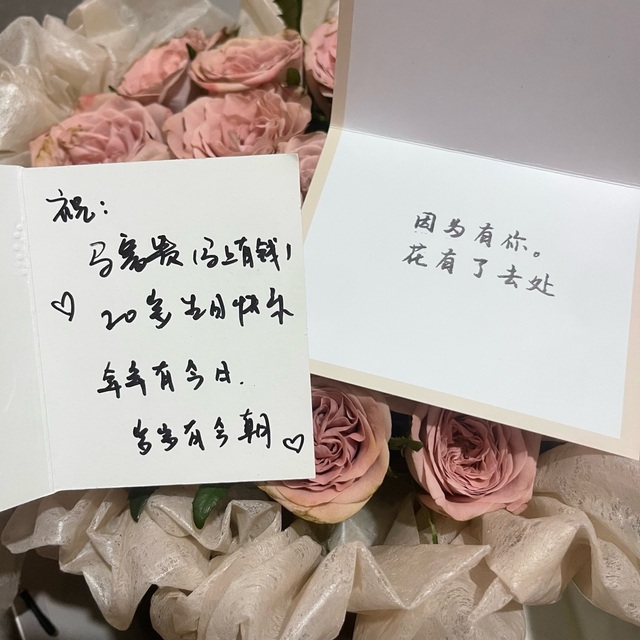 祝：
马富贵（马上有钱）
20岁生日快乐
年年有今日.
岁岁有今朝
因为有你。
花有了去处